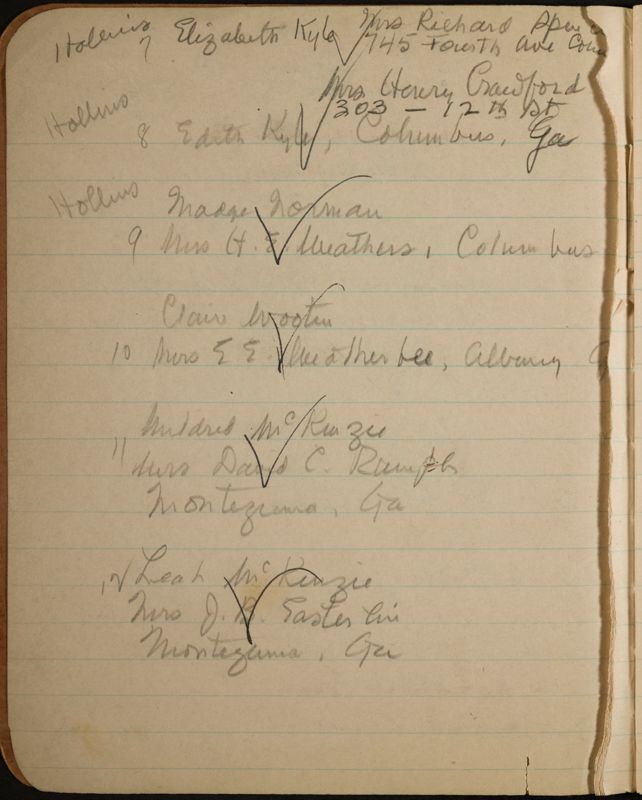 Hollins
7 Elizabeth Kyle Mrs Richard
745 Fourth Ave
Mrs Henry Crawford
303 - 12th St
Hollins
8 Edith Kyle, Columbus, Ga
Hollins
Madge Norman
9 Mrs H. E. Weathers, Columbus
Clair Wooten
10 Mrs E E Weatherbee, Albany
Mildred McKenzie
11 Mrs David C.
Montezuma, Ga
12 Leah McKenzie
Mrs J. B. Easterlin
Montezuma, Ga